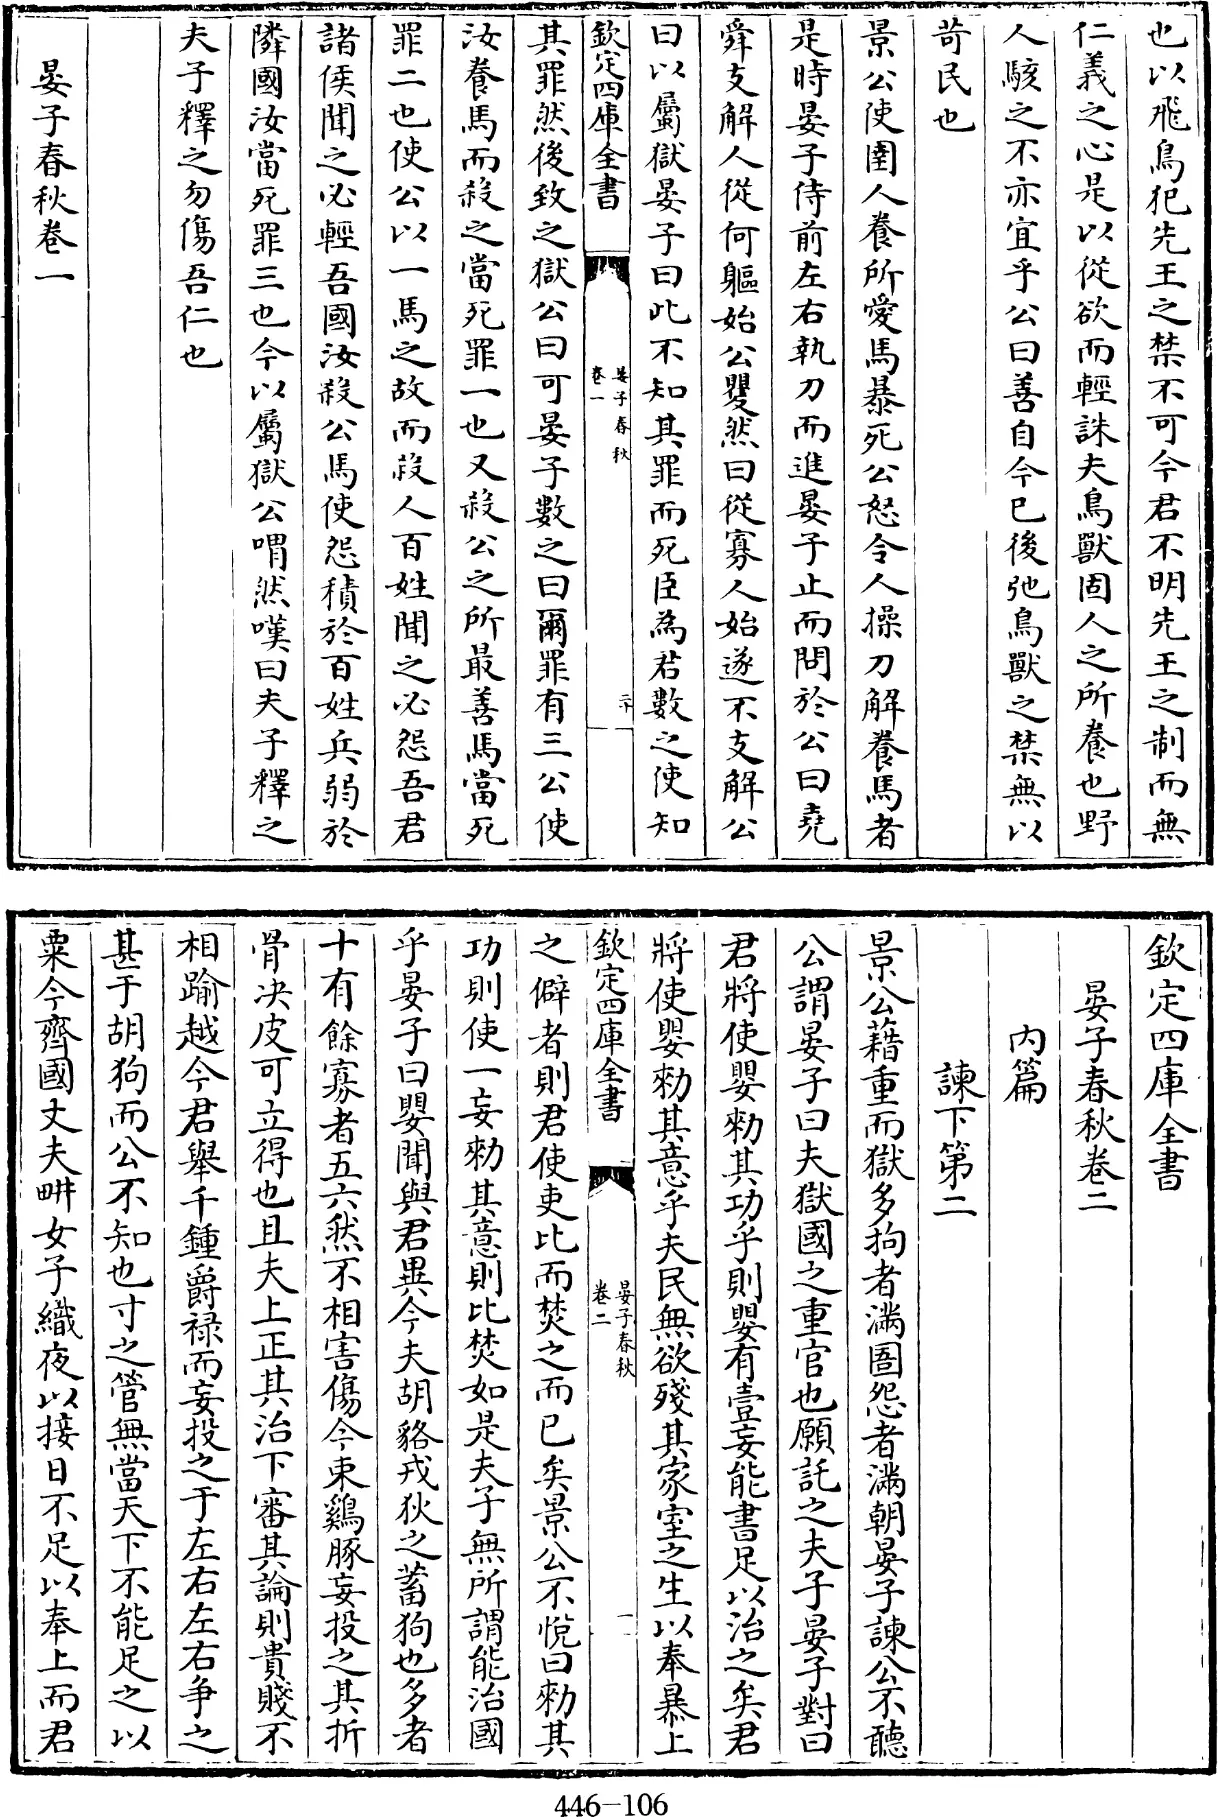 也以飛鳥犯先王之禁不可今君不明先王之制而無
仁義之心是以從欲而輕誅夫鳥獸固人之所養也野
人駭之不亦宜乎公曰善自今已後弛鳥獸之禁無以
苛民也
景公使圉人養所愛馬暴死公怒令人操刀解養馬者
是時晏子侍前左右執刀而進晏子止而問於公曰堯
舜支解人從何軀始公矍然曰從寡人始遂不支解公
曰以屬獄晏子曰此不知其罪而死臣為君數之使知
欽定四庫全書
晏子春秋
卷一
二十
其罪然後致之獄公曰可晏子數之曰爾罪有三公使
汝養馬而殺之當死罪一也又殺公之所最善馬當死
罪二也使公以一馬之故而殺人百姓聞之必怨吾君
諸侯聞之必輕吾國汝殺公馬使怨積於百姓兵弱於
隣國汝當死罪三也今以屬獄公喟然嘆曰夫子釋之
夫子釋之勿傷吾仁也
晏子春秋卷一
欽定四庫全書
晏子春秋卷二
內篇
諫下第二
景公藉重而獄多拘者滿圄怨者滿朝晏子諫公不聽
公謂晏子曰夫獄國之重官也願託之夫子晏子對曰
君將使嬰勑其功乎則嬰有壹妄能書足以治之矣君
將使嬰勑其意乎夫民無欲殘其家室之生以奉暴上
欽定四庫全書
晏子春秋
卷二
一
之僻者則君使吏比而焚之而已矣景公不悅曰勑其
功則使一妄勑其意則比焚如是夫子無所謂能治國
乎晏子曰嬰聞與君異今夫胡貉戎狄之蓄狗也多者
十有餘寡者五六然不相害傷今束鷄豚妄投之其折
骨决皮可立得也且夫上正其治下審其論則貴賤不
相踰越今君舉千鍾爵祿而妄投之于左右左右争之
甚于胡狗而公不知也寸之管無當天下不能足之以
粟今齊國丈夫畊女子織夜以接日不足以奉上而君
446-106